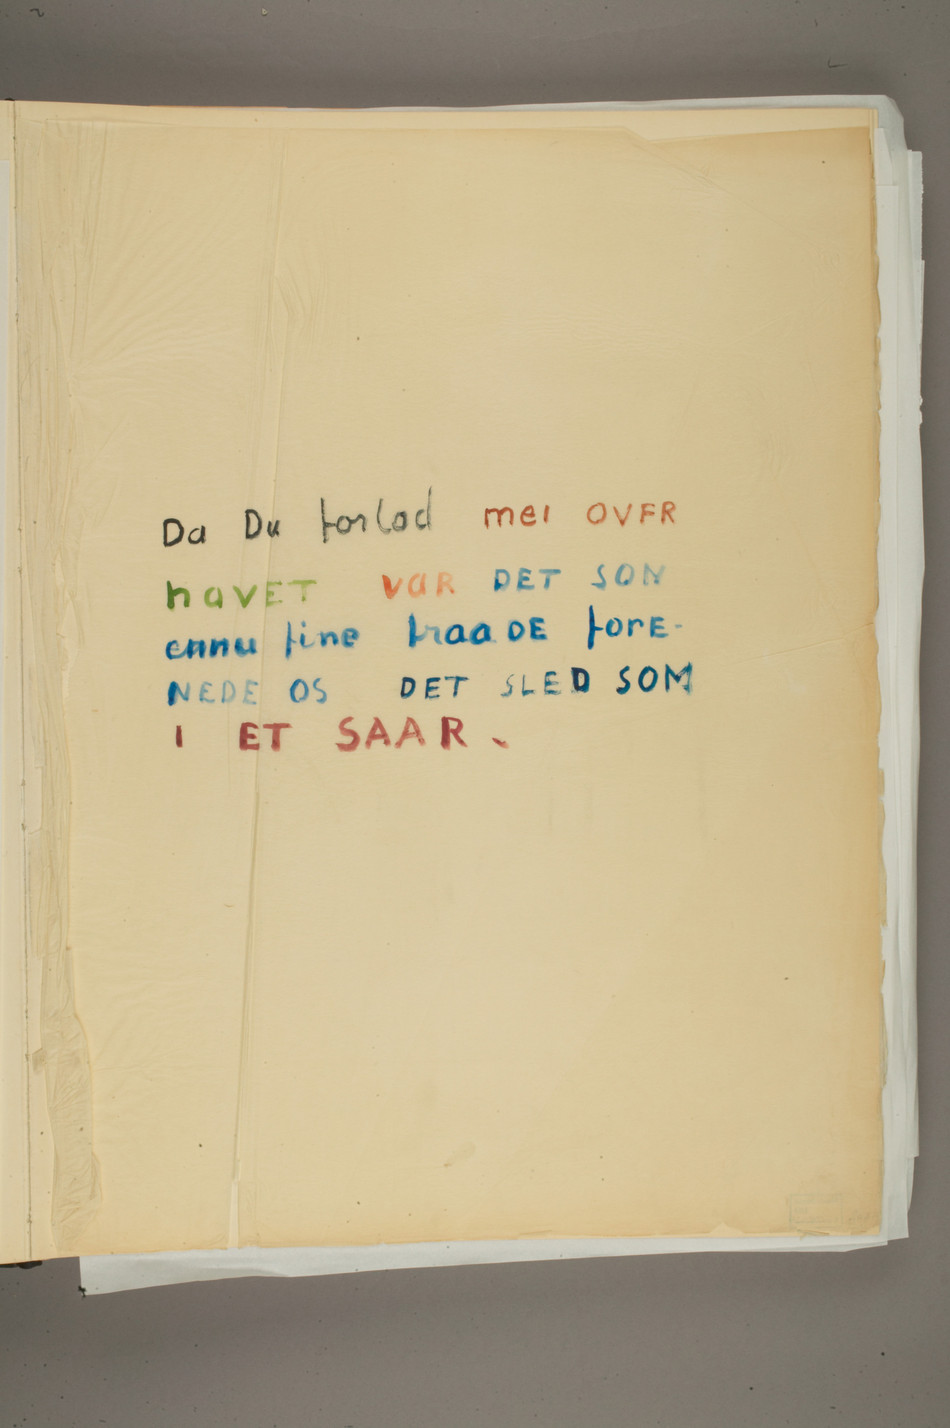 Da Du forlod mei OVER
havET VaR DET SOM
ennu fine traaDE fore-
NEDE OS DET SLED SOM
I ET SAAR.